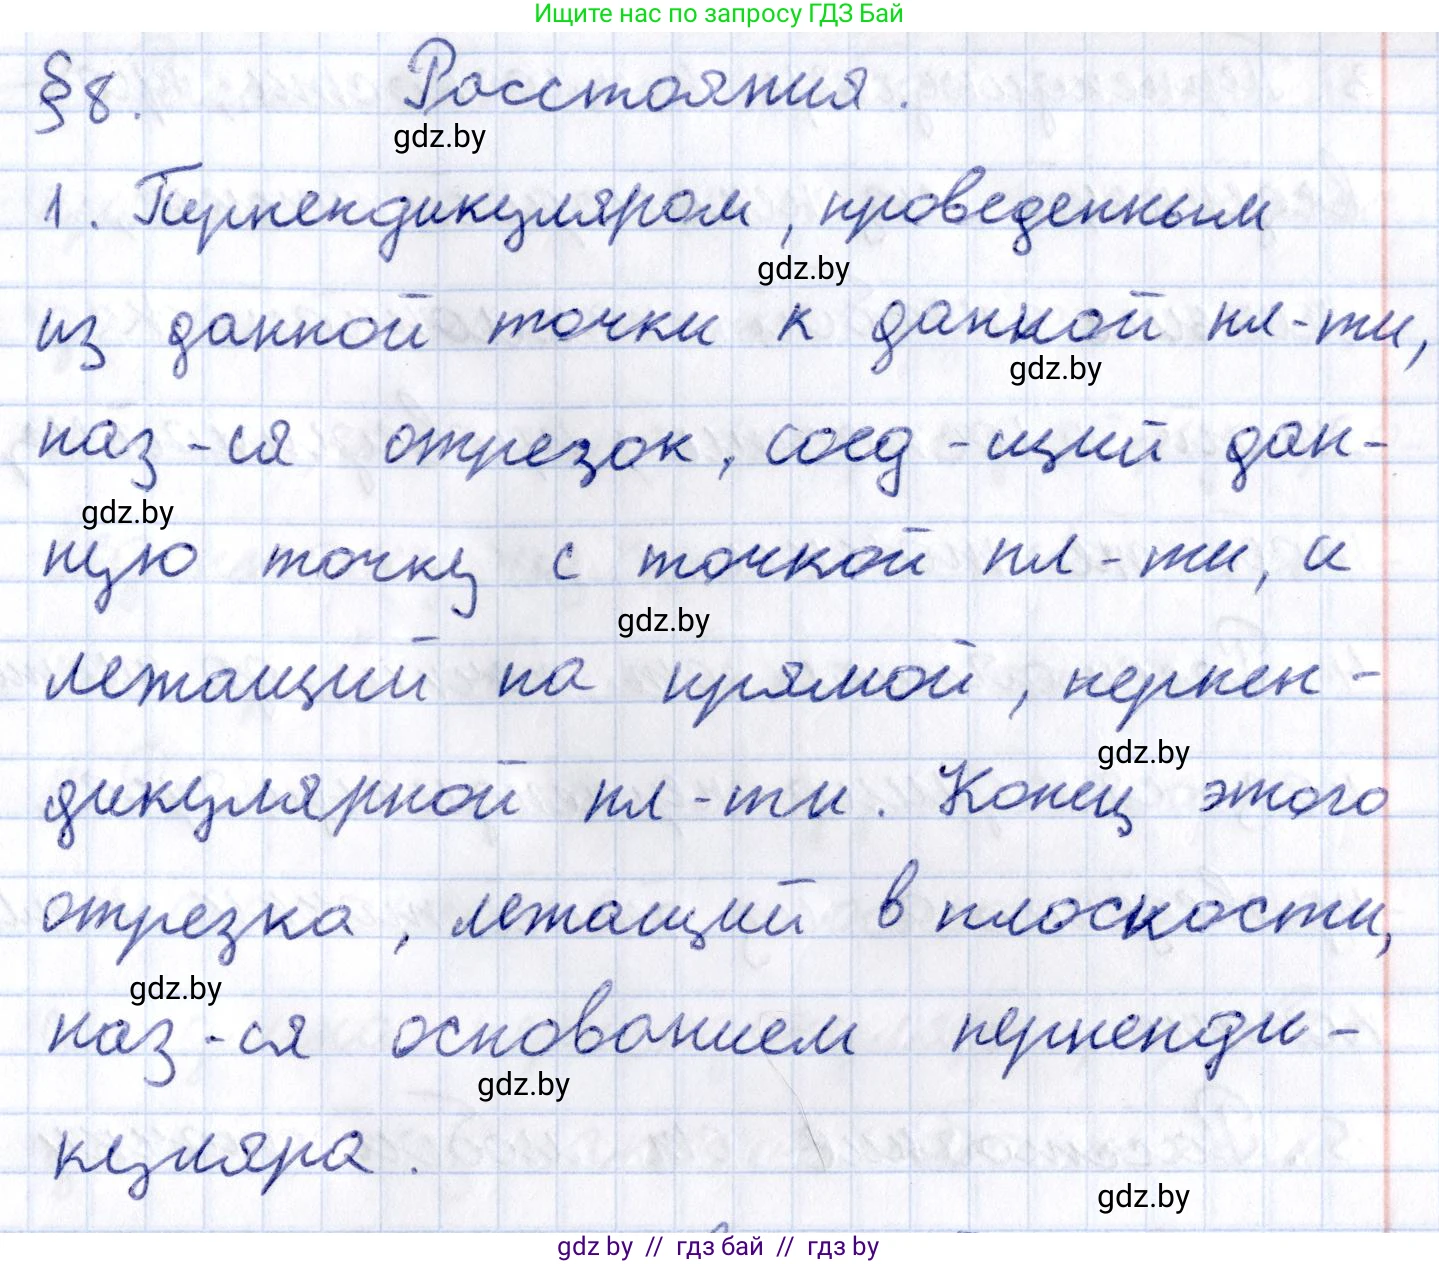 Ищите нас по запросу ГДЗ Бай
§8. Расстояния.
gdz.by
1. Перпендикуляром, проведенным
gdz.by
из данной точки к данной пл-ти,
gdz.by
наз-ся отрезок, соед-щий дан-
gdz.by
ную точку с точкой пл-ти, и
gdz.by
лежащий на прямой, перпен-
gdz.by
дикулярной пл-ти. Конец этого
отрезка, лежащий в плоскости,
gdz.by
наз-ся основанием перпенди-
gdz.by
куляра.
gdz.by
gdz by // гдз бай // гдз by